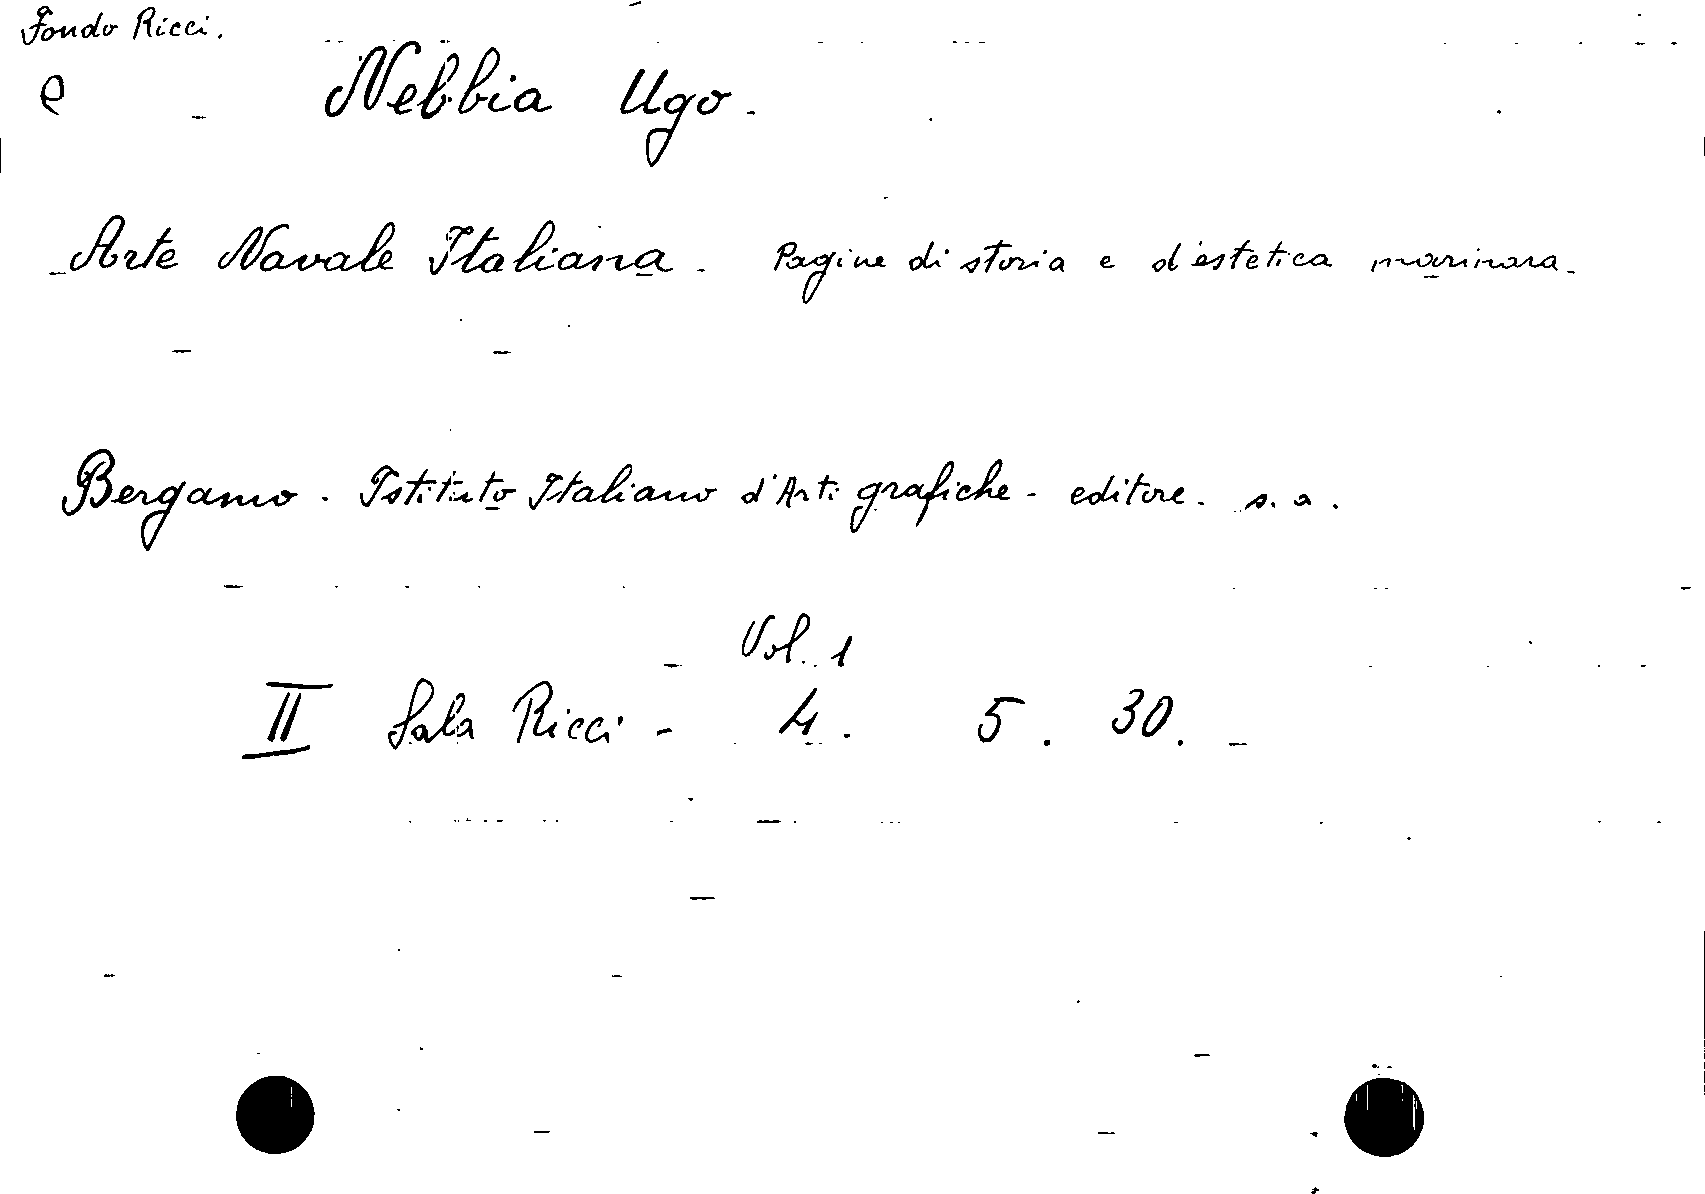 Fondo Ricci.
e Nebbia Ugo.
Arte Navale Italiana. Pagine di storia e d'estetica marinara.
Bergamo. Istituto Italiano d'Arti grafiche - editore. s. a.
Vol. 1
II Sala Ricci - 4. 5. 30.